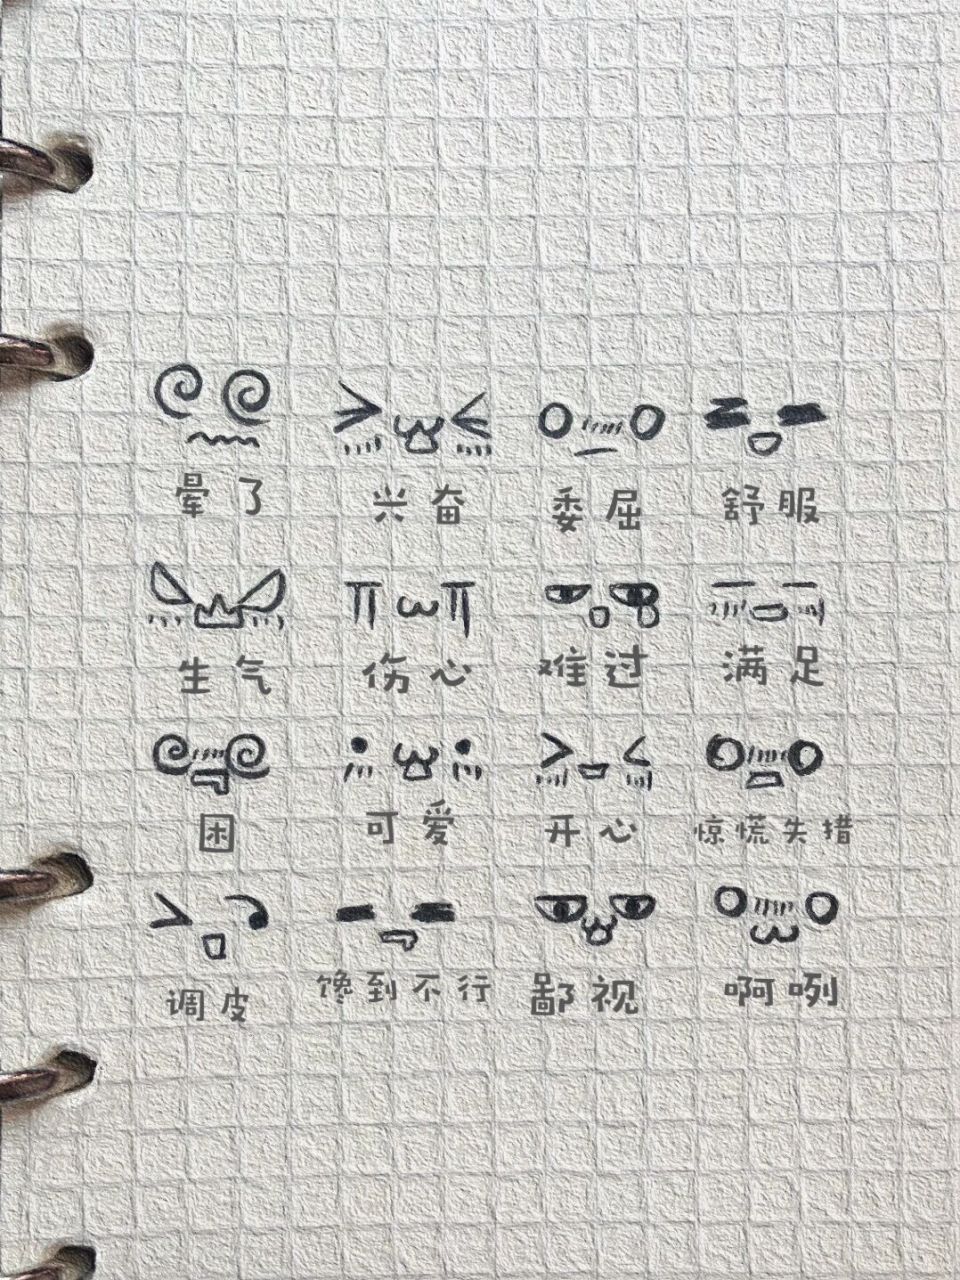 晕了 兴奋 委屈 舒服
生气 伤心 难过 满足
困 可爱 开心 惊慌失措
调皮 馋到不行 鄙视 啊咧